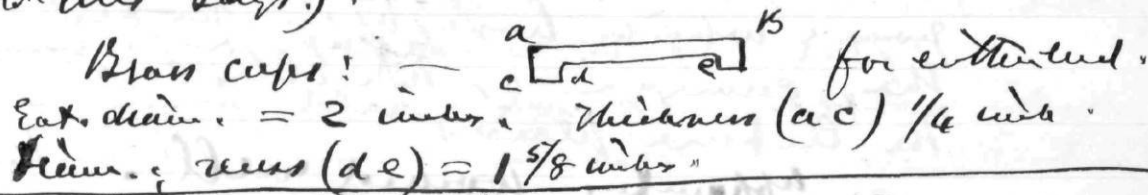 Brass caps! — a B c d e for either end.
Ext. diam. = 2 inches. Thickness (ac) 1/4 inch.
Diam. recess (de) = 1 5/8 inches.